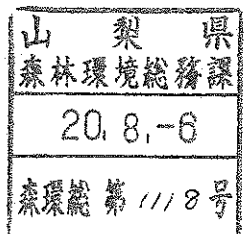 山梨県
森林環境総務課
20.8.-6
森環総第1118号